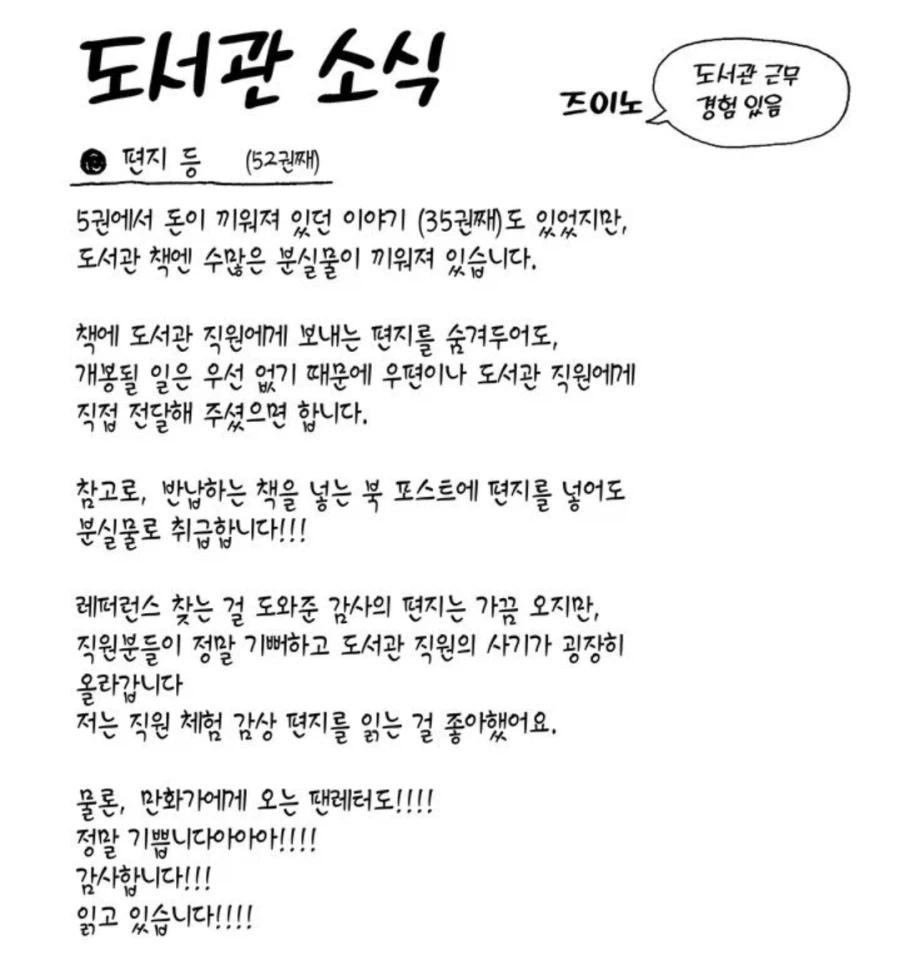 도서관 소식
즈이노
도서관 근무
경험 있음
편지 등 (52권째)
5권에서 돈이 끼워져 있던 이야기 (35권째)도 있었지만,
도서관 책엔 수많은 분실물이 끼워져 있습니다.
책에 도서관 직원에게 보내는 편지를 숨겨두어도,
개봉될 일은 우선 없기 때문에 우편이나 도서관 직원에게
직접 전달해 주셨으면 합니다.
참고로, 반납하는 책을 넣는 북 포스트에 편지를 넣어도
분실물로 취급합니다!!!
레퍼런스 찾는 걸 도와준 감사의 편지는 가끔 오지만,
직원분들이 정말 기뻐하고 도서관 직원의 사기가 굉장히
올라갑니다
저는 직원 체험 감상 편지를 읽는 걸 좋아했어요.
물론, 만화가에게 오는 팬레터도!!!!
정말 기쁩니다아아아!!!!
감사합니다!!!
읽고 있습니다!!!!